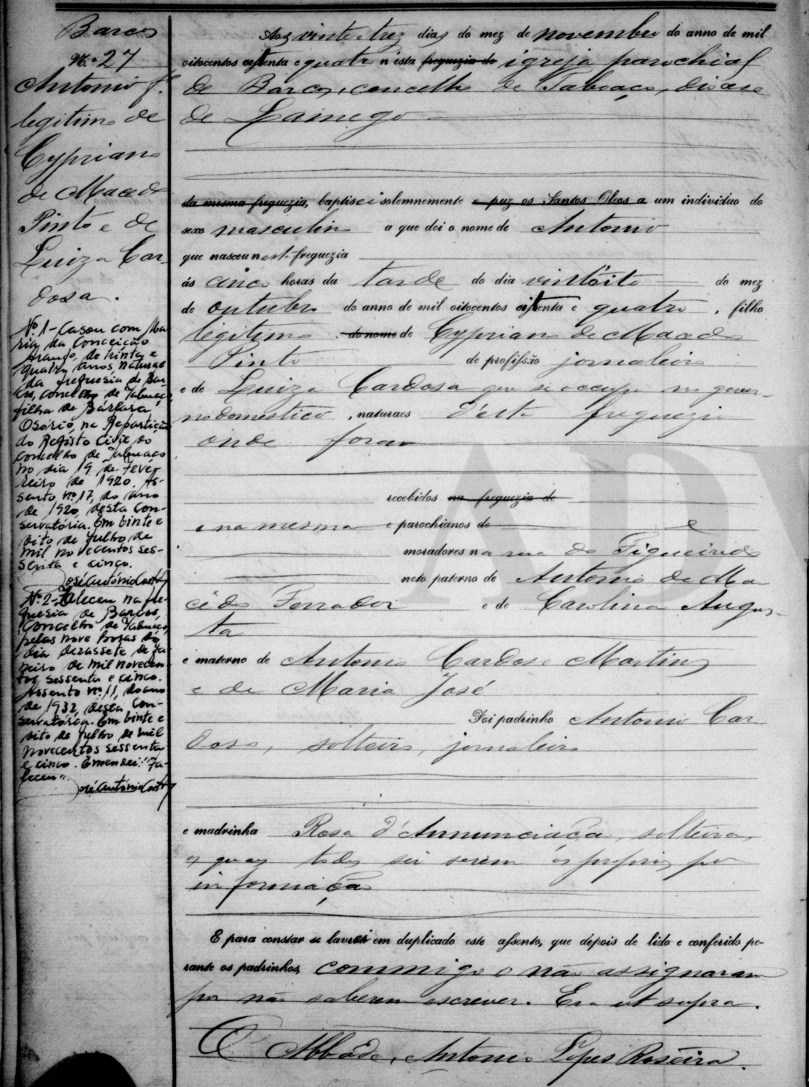 Barcos
N.º 27
Antonio f.
legitimo de
Cypriano
de Macedo
Pinto e de
Luiza Car-
dosa.
Nº 1 - Casou com Ma-
ria da Conceição
Araujo, de trinta e
quatro anos, natural
da freguesia de Bar-
cos, concelho de Tabuaço,
filha de Bárbara
Osório, na Repartição
do Registo Civil do
concelho de Tabuaço
no dia 19 de Feve-
reiro de 1920. As-
sento nº 17, do ano
de 1920, desta Con-
servatória. Em vinte e
oito de Julho de
mil novecentos ses-
senta e cinco.
José António
Nº 2 - Faleceu na fre-
guesia de Barcos,
concelho de Tabuaço,
pelas nove horas do
dia dezassete de Ja-
neiro de mil novecen-
tos sessenta e cinco.
Assento nº 11, do ano
de 1932, desta Con-
servatória. Em vinte e
oito de Julho de mil
novecentos sessenta
e cinco. Emendei: "Fa-
leceu".
José António
Aos vinte e trez dias do mez de novembro do anno de mil
oitocentos oitenta e quatro n'esta freguezia de igreja parochial
de Barcos, concelho de Tabuaço, diocese
de Lamego
da mesma freguezia, baptisei solemnemente e puz os Santos Oleos a um individuo do
sexo masculino a que dei o nome de Antonio
que nasceu n'esta freguezia
ás cinco horas da tarde do dia vinte oito do mez
de outubro do anno de mil oitocentos oitenta e quatro, filho
legitimo do nome de Cypriano de Macedo
Pinto de profissão jornaleiro
e de Luiza Cardosa que se occupa no gover-
no domestico, naturaes d'esta freguezia
onde foram
recebidos na freguezia de
e na mesma e parochianos de e
moradores na rua do Figueiredo
neto paterno de Antonio de Ma-
cedo Ferrador e de Carolina Augus-
ta
e materno de Antonio Cardoso Martins
e de Maria José
Foi padrinho Antonio Car-
doso, solteiro, jornaleiro
e madrinha Rosa d'Annunciação, solteira,
os quaes todos sei serem os proprios por
informação
E para constar se lavrei em duplicado este assento, que depois de lido e conferido pe-
rante os padrinhos, commigo o não assignaram
por não saberem escrever. Era ut supra.
O Abbade, Antonio Lopes Roseira.
ADV